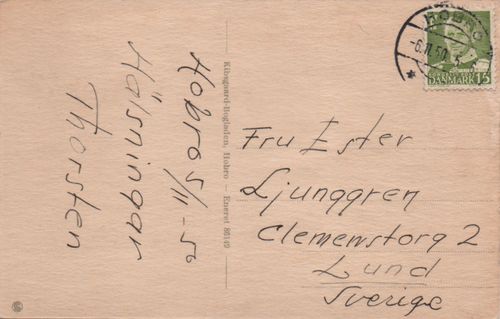 Hobro 5/11 - 50
Hälsningar
Thorsten
Kihsgaard-Bogladen, Hobro — Eneret 86149
HOBRO
-6.11.50. 5
DANMARK 15
Fru Ester
Ljunggren
Clemenstorg 2
Lund
Sverige